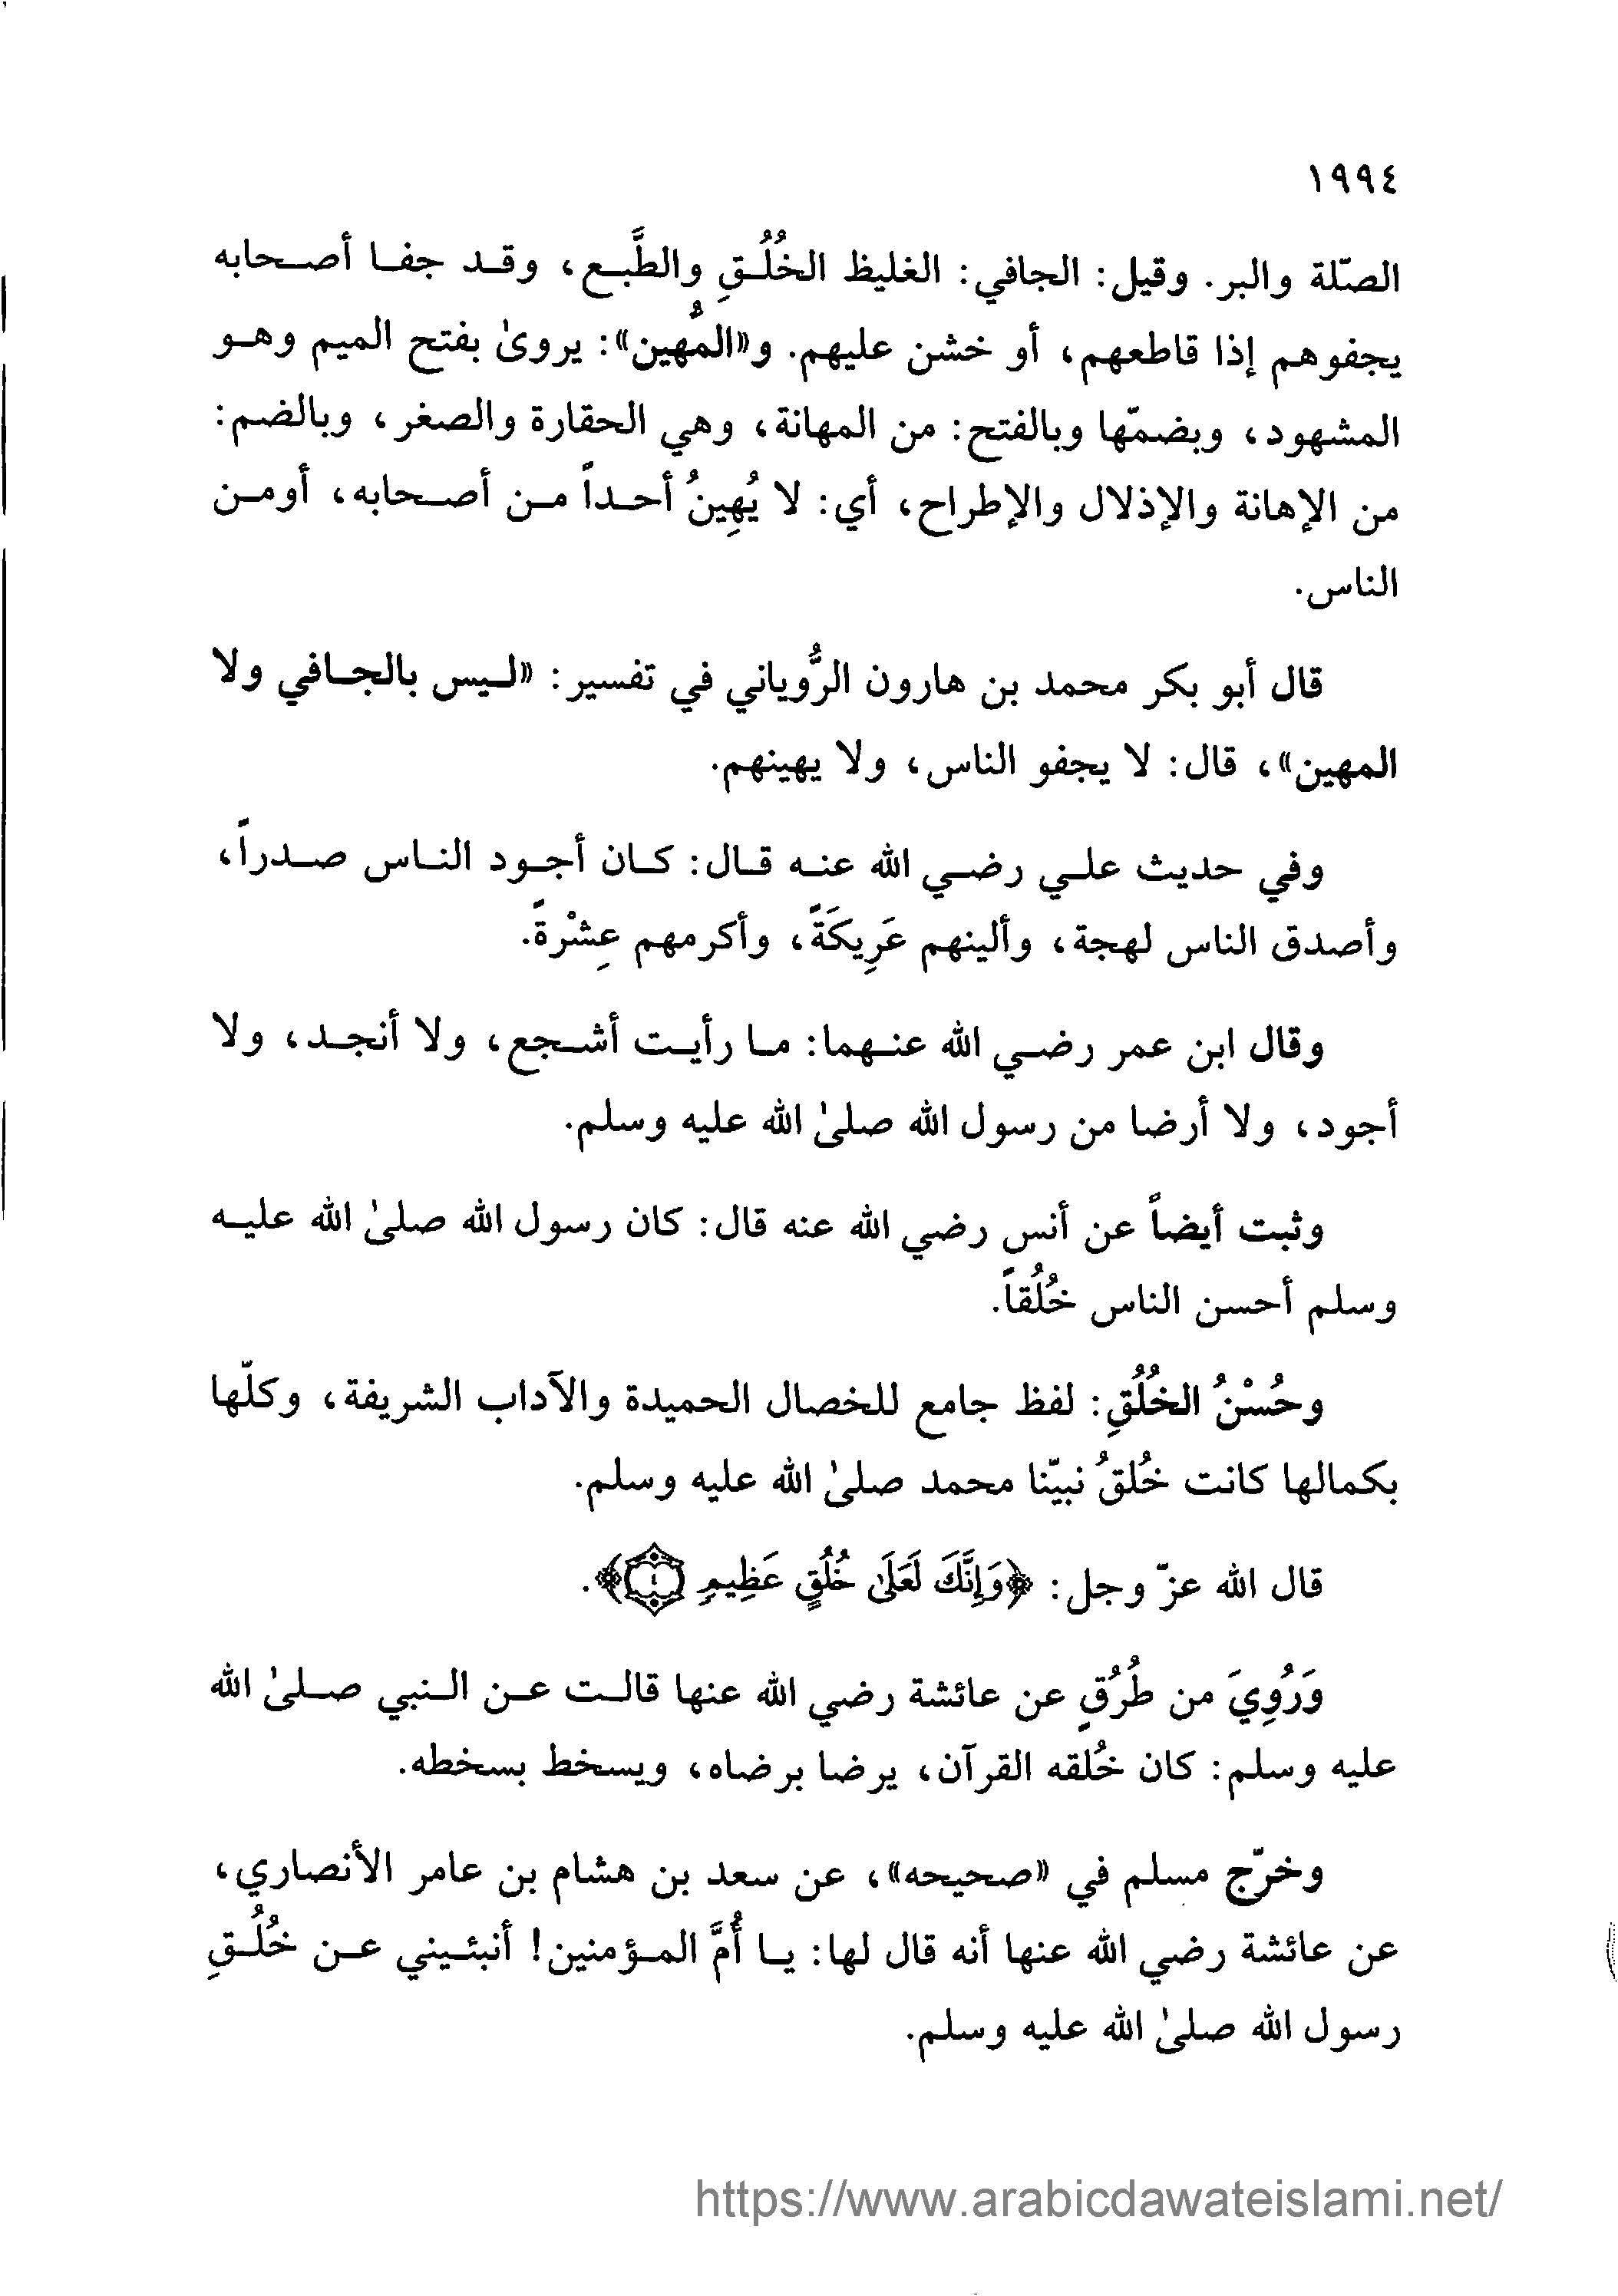 ١٩٩٤
الصّلة والبر. وقيل: الجافي: الغليظ الخُلُـقِ والطَّبـع، وقـد جفـا أصـحابه
يجفوهم إذا قاطعهم، أو خشن عليهم. و«المُهين»: يروىٰ بفتح الميم وهـو
المشهود، وبضمّها وبالفتح: من المهانة، وهي الحقارة والصغر، وبالضم:
من الإهانة والإذلال والإطراح، أي: لا يُهِينُ أحـداً مـن أصـحابه، أومـن
الناس.
قال أبو بكر محمد بن هارون الرُّوياني في تفسير: «لـيس بالجـافي ولا
المهين»، قال: لا يجفو الناس، ولا يهينهم.
وفي حديث علـي رضـي الله عنـه قـال: كـان أجـود النـاس صـدراً،
وأصدق الناس لهجة، وألينهم عَرِيكَةً، وأكرمهم عِشْرةً.
وقال ابن عمر رضـي الله عنـهما: مـا رأيـت أشـجع، ولا أنجـد، ولا
أجود، ولا أرضا من رسول الله صلىٰ الله عليه وسلم.
وثبت أيضاً عن أنس رضي الله عنه قال: كان رسول الله صلىٰ الله عليـه
وسلم أحسن الناس خُلُقاً.
وحُسْنُ الخُلُقِ: لفظ جامع للخصال الحميدة والآداب الشريفة، وكلّها
بكمالها كانت خُلقُ نبيّنا محمد صلىٰ الله عليه وسلم.
قال الله عزّ وجل: ﴿وَإِنَّكَ لَعَلَىٰ خُلُقٍ عَظِيمٍ ٤﴾.
وَرُوِيَ من طُرُقٍ عن عائشة رضي الله عنها قالـت عـن الـنبي صـلىٰ الله
عليه وسلم: كان خُلقه القرآن، يرضا برضاه، ويسخط بسخطه.
وخرّج مسلم في «صحيحه»، عن سعد بن هشام بن عامر الأنصاري،
عن عائشة رضي الله عنها أنه قال لها: يـا أُمَّ المـؤمنين! أنبئـيني عـن خُلُـقِ
رسول الله صلىٰ الله عليه وسلم.
https://www.arabicdawateislami.net/